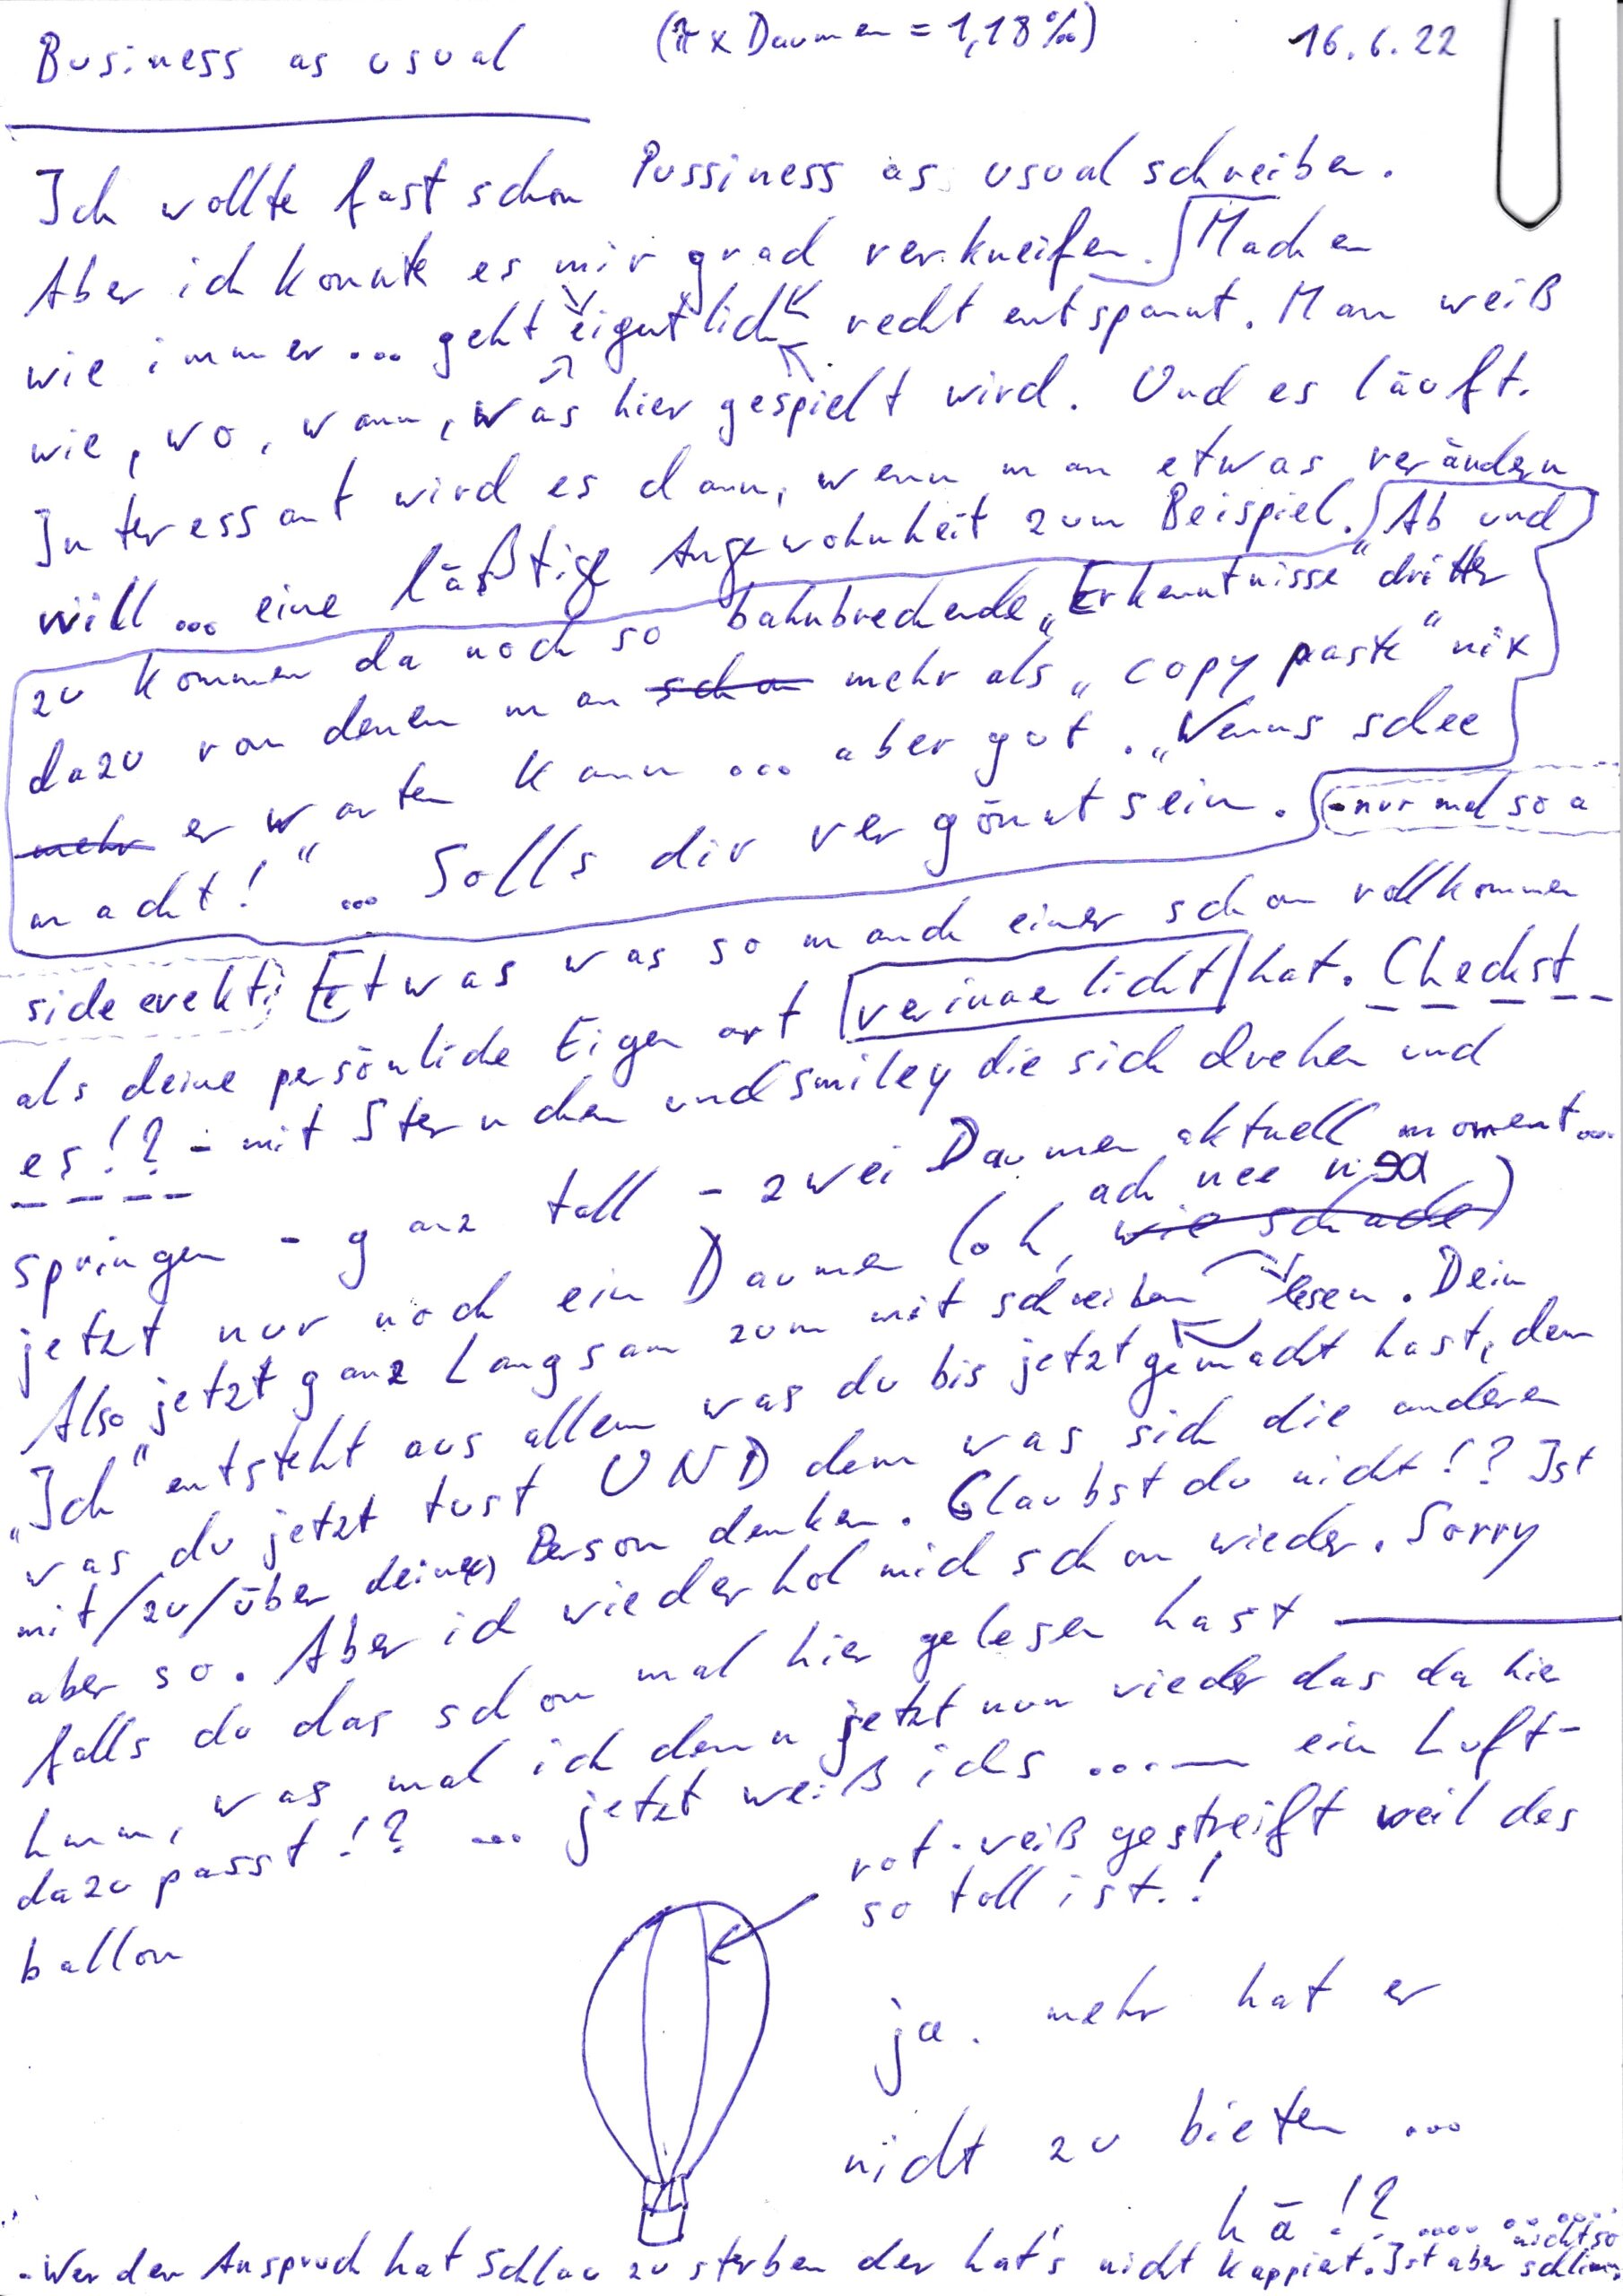 Business as usual (π x Daumen = 1,18‰) 16.6.22
Ich wollte fast schon Pussiness as usual schreiben.
Aber ich konnte es mir grad verkneifen. Machen
wie immer ... geht eigentlich recht entspannt. Man weiß
wie, wo, wann, was hier gespielt wird. Und es läuft.
Interessant wird es dann, wenn man etwas verändern
will ... eine läßtige Angewohnheit zum Beispiel. Ab und
zu kommen da noch so bahnbrechende „Erkenntnisse" dritter
dazu von denen man schon mehr als „copy paste" nix
mehr erwarten kann ... aber gut. „Wenns schee
macht!" ... Solls dir vergönnt sein. - nur mal so a
side erekt; Etwas was so manch einer schon vollkommen
als deine persönliche Eigenart verinnerlicht hat. Checkst
es!? - mit Sternchen und smiley die sich drehen und
springen - ganz toll - zwei Daumen aktuell moment...
jetzt nur noch ein Daumen (oh, wie schade)
ach nee
Also jetzt ganz langsam zum mit schreiben lesen. Dein
„Ich" entsteht aus allem was du bis jetzt gemacht hast, dem
was du jetzt tust UND dem was sich die anderen
mit/zu/über deine(r) Person denken. Glaubst du nicht!? Ist
aber so. Aber ich wiederhol mich schon wieder. Sorry
falls du das schon mal hier gelesen hast
hmm, was mal ich denn jetzt nur wieder das da hie
dazu passt!? ... jetzt weiß ichs .... — ein Luft-
ballon
rot-weiß gestreift weil des
so toll ist.!
ja. mehr hat er
nicht zu bieten ...
hä!?
- Wer den Anspruch hat schlau zu sterben der hat's nicht kappiert. Ist aber nicht so schlimm